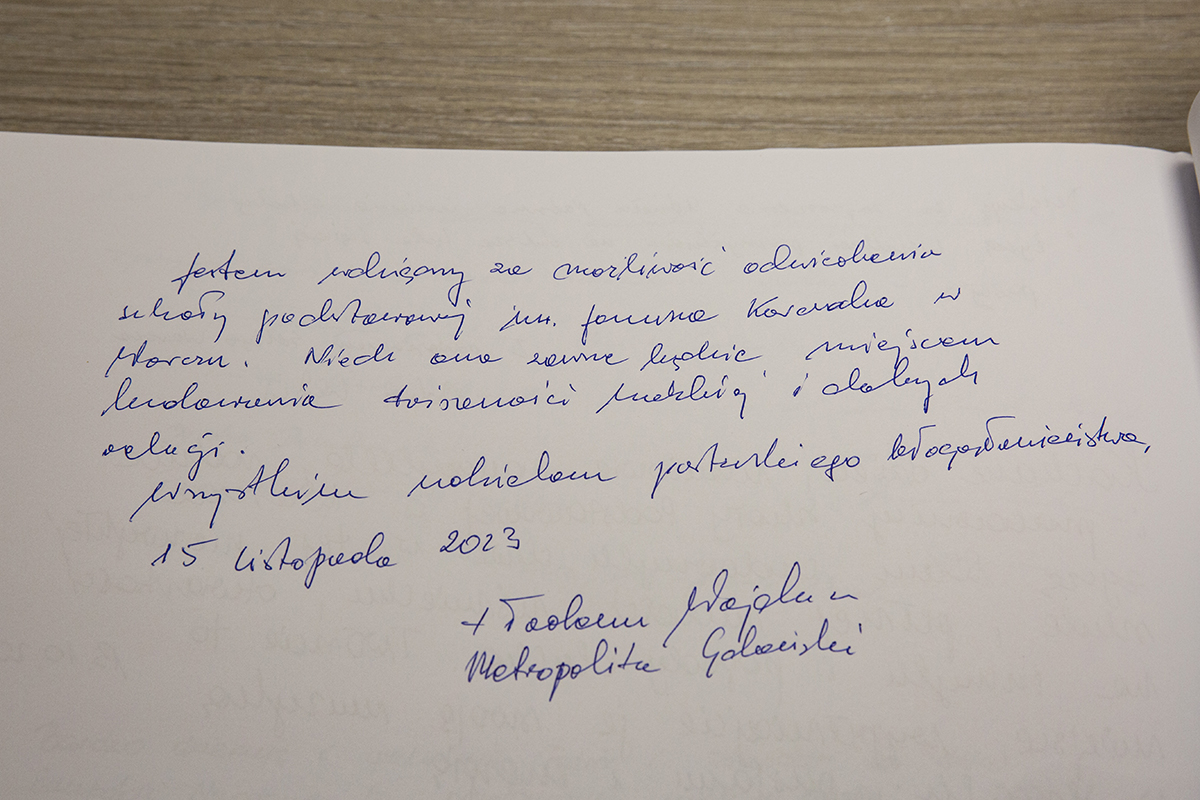 Jestem wdzięczny za możliwość odwiedzenia
szkoły podstawowej im. Janusza Korczaka w
Warczu. Niech ona zawsze będzie miejscem
budowania tożsamości ludzkiej i dobrych
relacji.
Wszystkim udzielam pasterskiego błogosławieństwa,
15 listopada 2023
+ Tadeusz Wojda
Metropolita Gdański